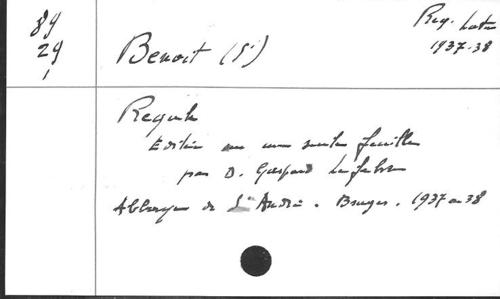 89
29
1
Benoit (St)
Reg. Latin
1937-38
Regula
Edition sur une seule feuille
par D. Gaspard Lefebvre
Abbaye de St André. Bruges. 1937-38